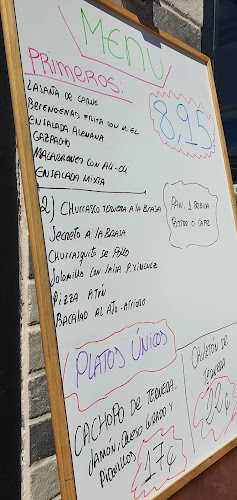 MENU
PRIMEROS:
LASAÑA DE CARNE
BERENGENAS FRITA CON MIEL
ENSALADA ALEMANA
GAZPACHO
MACARRONES CON ALI-OLI
ENSALADA MIXTA
8,95
2) CHURRASCO TERNERA A LA BRASA
SECRETO A LA BRASA
CHURRASQUITO DE POLLO
SOLOMILLO CON SALSA P. XIMENEZ
PIZZA ATÚN
BACALAO AL AJO-ARRIERO
PAN, 1 BEBIDA
POSTRE O CAFE
PLATOS ÚNICOS
CACHOPO DE TERNERA,
JAMÓN, QUESO CURADO Y
PIQUILLOS
17€
CHULETON DE
TERNERA
22€